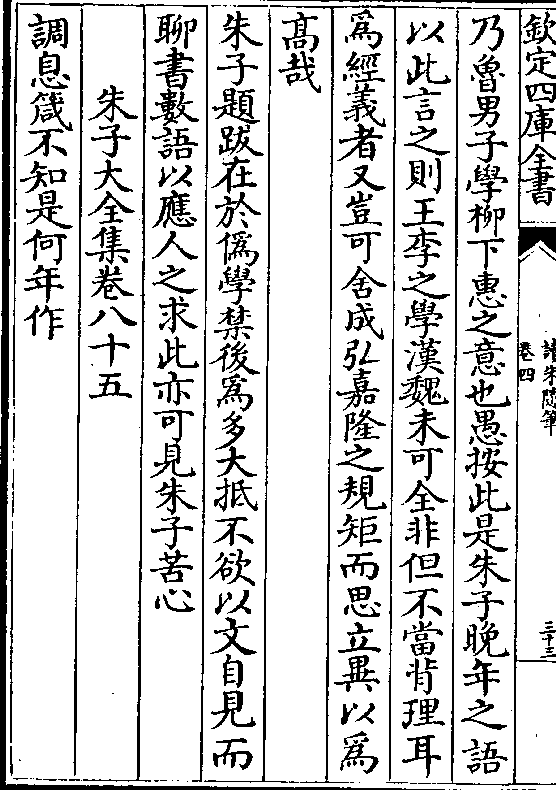 欽定四庫全書
讀朱隨筆
卷四
三十三
乃魯男子學柳下惠之意也愚按此是朱子晚年之語
以此言之則王李之學漢魏未可全非但不當背理耳
為經義者又豈可舍成弘嘉隆之規矩而思立異以為
髙哉
朱子題跋在於偽學禁後為多大抵不欲以文自見而
聊書數語以應人之求此亦可見朱子苦心
朱子大全集卷八十五
調息箴不知是何年作